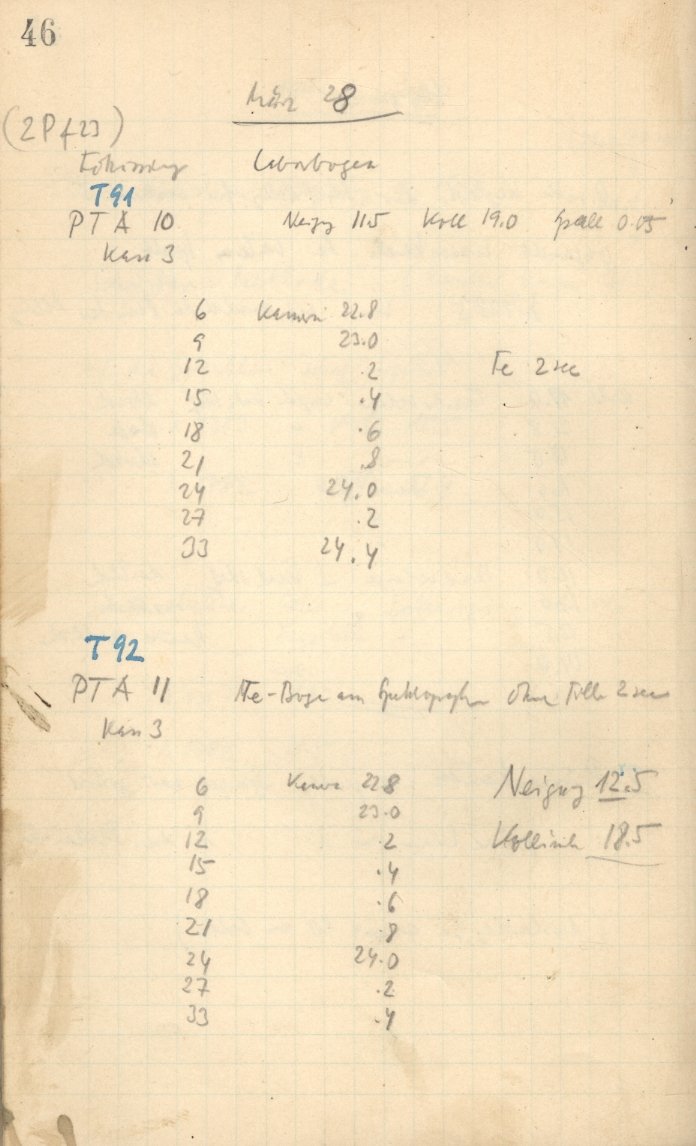 46
März 28
(2Pf23)
Fokussierung
T91
PTA 10 Neigg 11.5 Koll 19.0 Spalt 0.05
Kass 3
6 Kamera 22.8
9 23.0
12 .2 Fe 2 sec
15 .4
18 .6
21 .8
24 24.0
27 .2
33 24.4
T92
PTA 11 Fe-Bogen am Spektrographen ohne Filter 2 sec
Kass 3
6 Kamera 22.8 Neigung 12.5
9 23.0
12 .2 Kollimator 18.5
15 .4
18 .6
21 .8
24 24.0
27 .2
33 .4